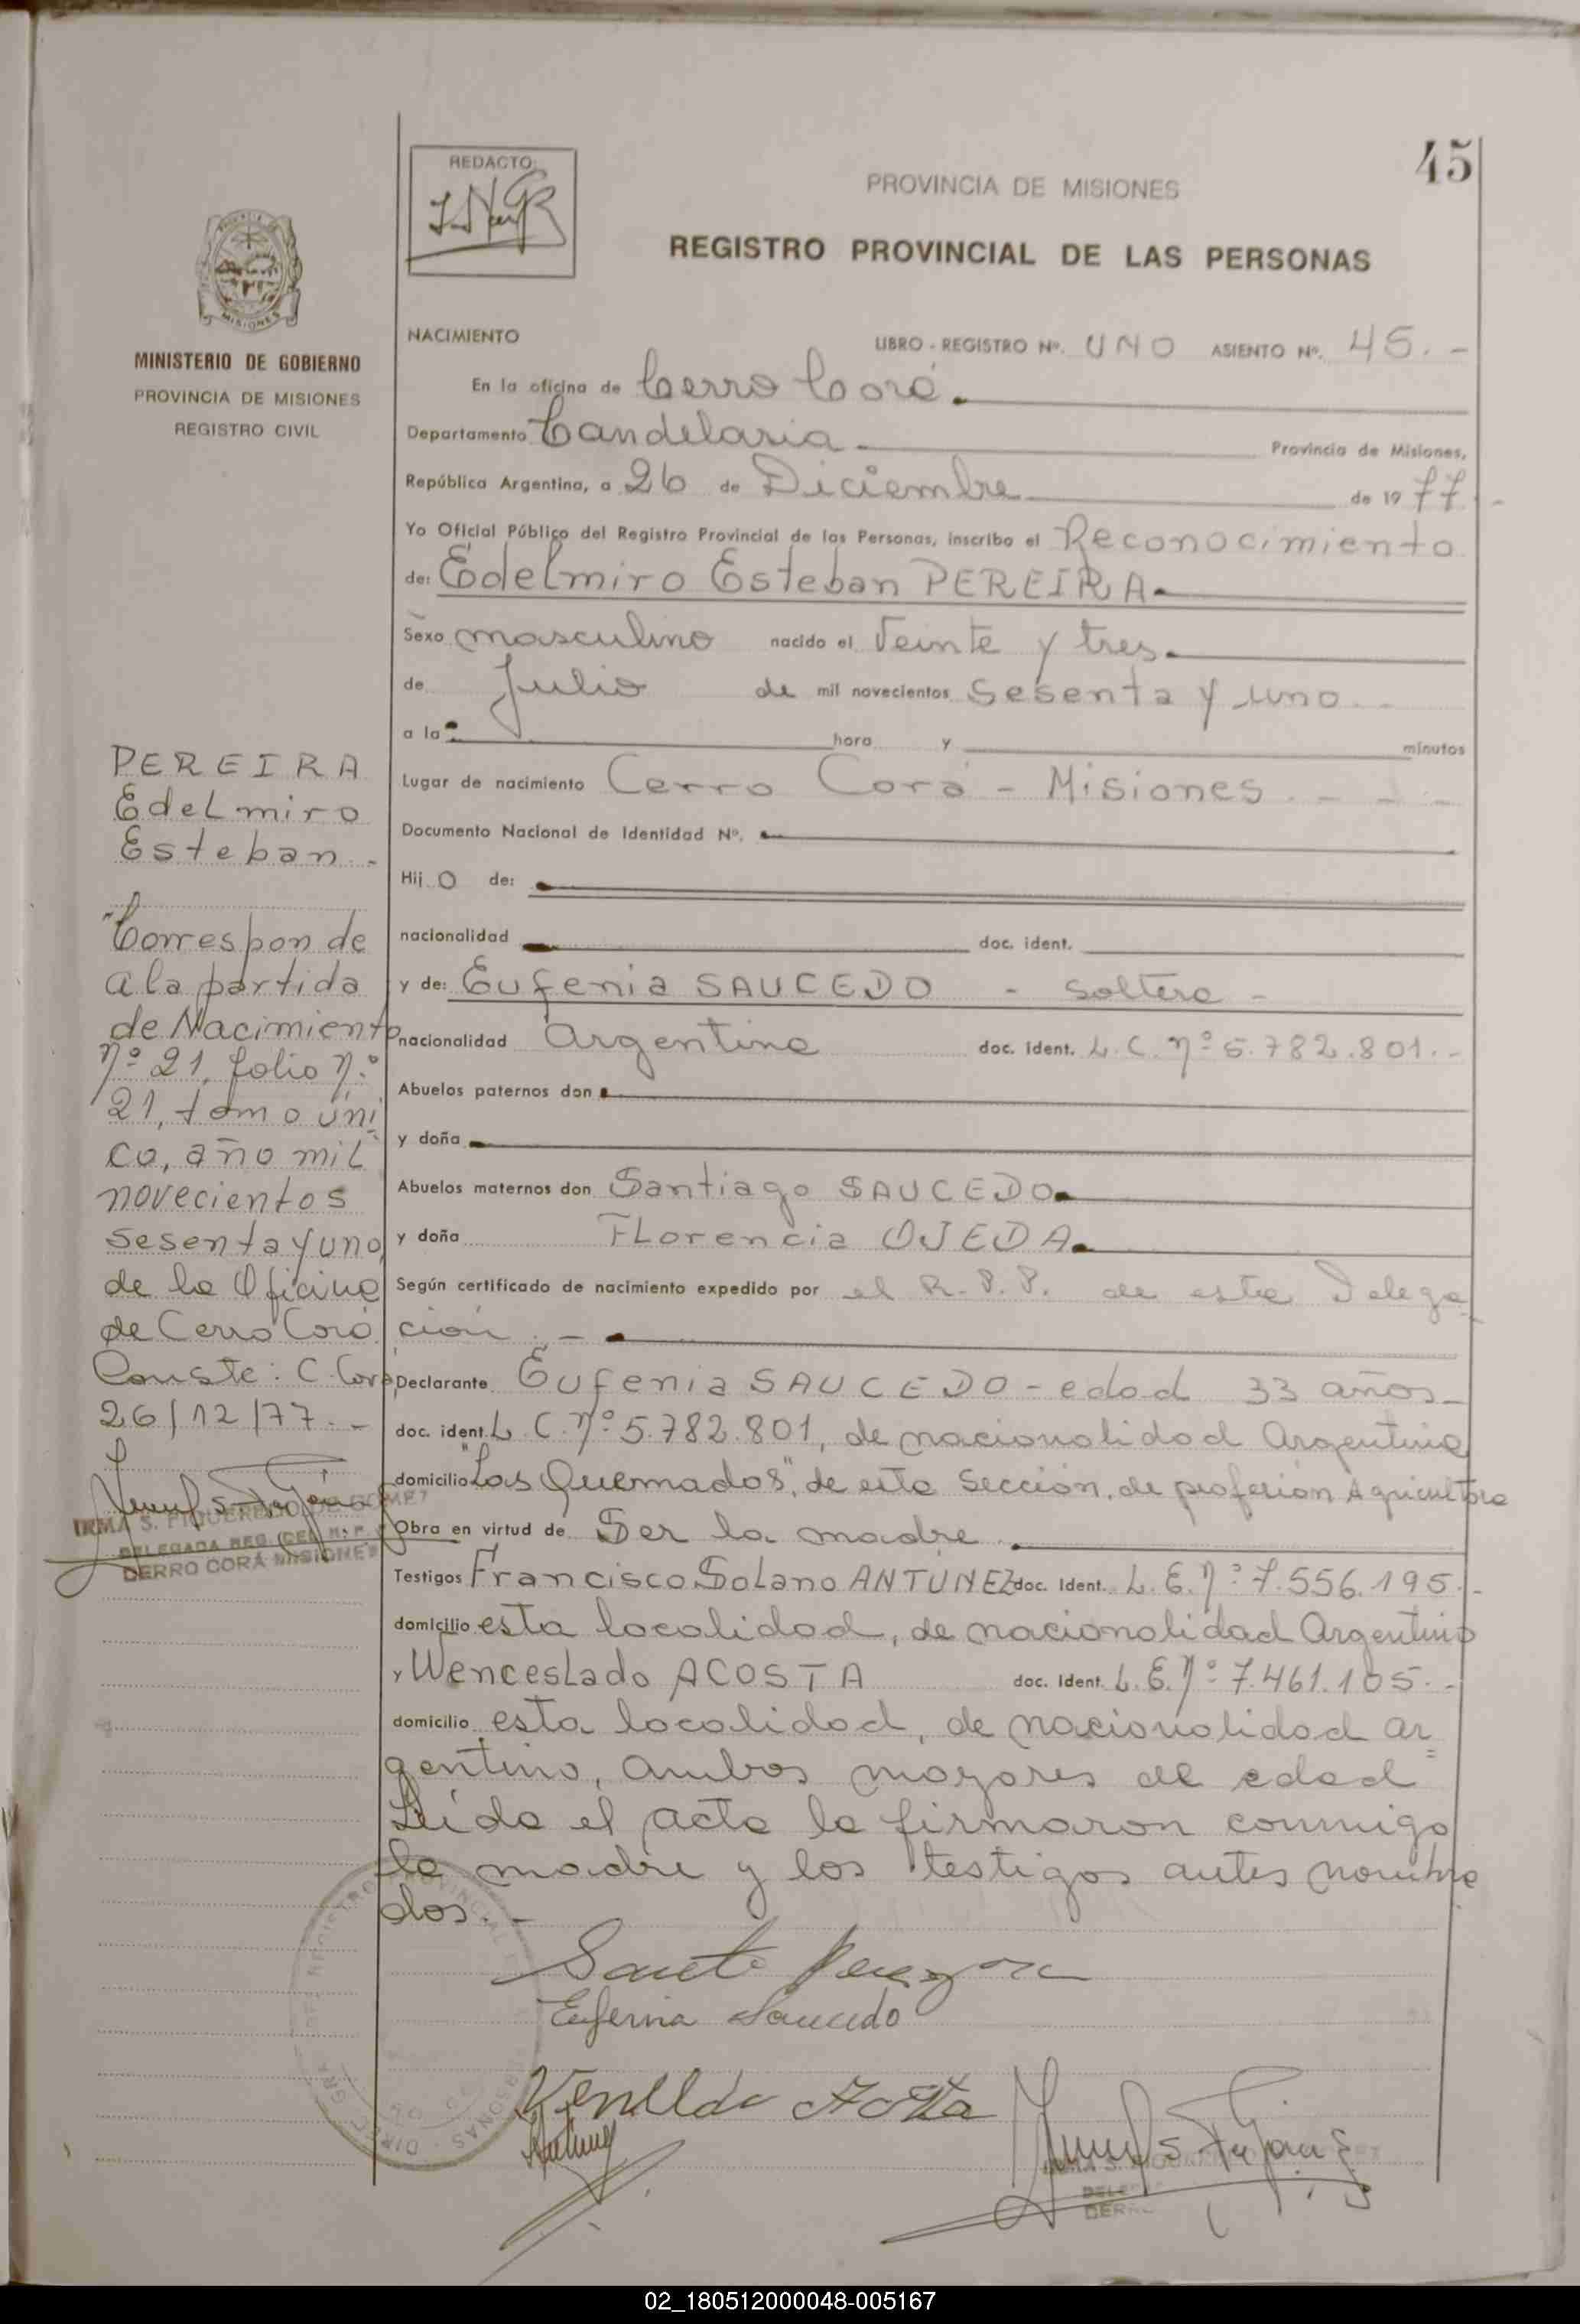 45
REDACTO:
PROVINCIA DE MISIONES
REGISTRO PROVINCIAL DE LAS PERSONAS
MISIONES
MINISTERIO DE GOBIERNO
PROVINCIA DE MISIONES
REGISTRO CIVIL
NACIMIENTO LIBRO - REGISTRO Nº. UNO ASIENTO Nº. 45.-
En la oficina de Cerro Corá.
Departamento Candelaria Provincia de Misiones,
República Argentina, a 26 de Diciembre de 1977.-
Yo Oficial Público del Registro Provincial de las Personas, inscribo el Reconocimiento
de: Edelmiro Esteban PEREIRA.
Sexo masculino nacido el Veinte y tres.
de Julio de mil novecientos sesenta y uno.-
a la hora y minutos
Lugar de nacimiento Cerro Corá - Misiones.- - -
Documento Nacional de Identidad Nº.
Hijo de:
nacionalidad doc. ident.
y de: Eufenia SAUCEDO - soltera -
nacionalidad Argentina doc. ident. L.C. nº 5.782.801.-
Abuelos paternos don
y doña
Abuelos maternos don Santiago SAUCEDO
y doña Florencia OJEDA
Según certificado de nacimiento expedido por el R.P.P. de esta Delega
ción.-
Declarante Eufenia SAUCEDO - edad 33 años -
doc. ident. L.C. nº 5.782.801, de nacionalidad Argentina
domicilio "Los Quemados", de esta Sección, de profesión Agricultora
Obra en virtud de Ser la madre.
Testigos Francisco Solano ANTUNEZ doc. Ident. L.E. nº 7.556.195.-
domicilio esta localidad, de nacionalidad Argentino
y Wenceslado ACOSTA doc. Ident. L.E. nº 7.461.105.-
domicilio esta localidad, de nacionalidad ar
gentino, ambos mayores de edad
Leída el acta la firmaron conmigo
la madre y los testigos antes nombra
dos.-
Eufenia Saucedo
PEREIRA
Edelmiro
Esteban.-
"Corresponde
a la partida
de Nacimiento
nº 21, folio n.º
21, tomo úni
co, año mil
novecientos
sesenta y uno,
de la Oficina
de Cerro Corá.
Conste: C. Corá
26/12/77.-
IRMA S. FIQUEREDO DE GOMEZ
DELEGADA REG. (DEL R. P.
CERRO CORÁ MISIONES
02_180512000048-005167